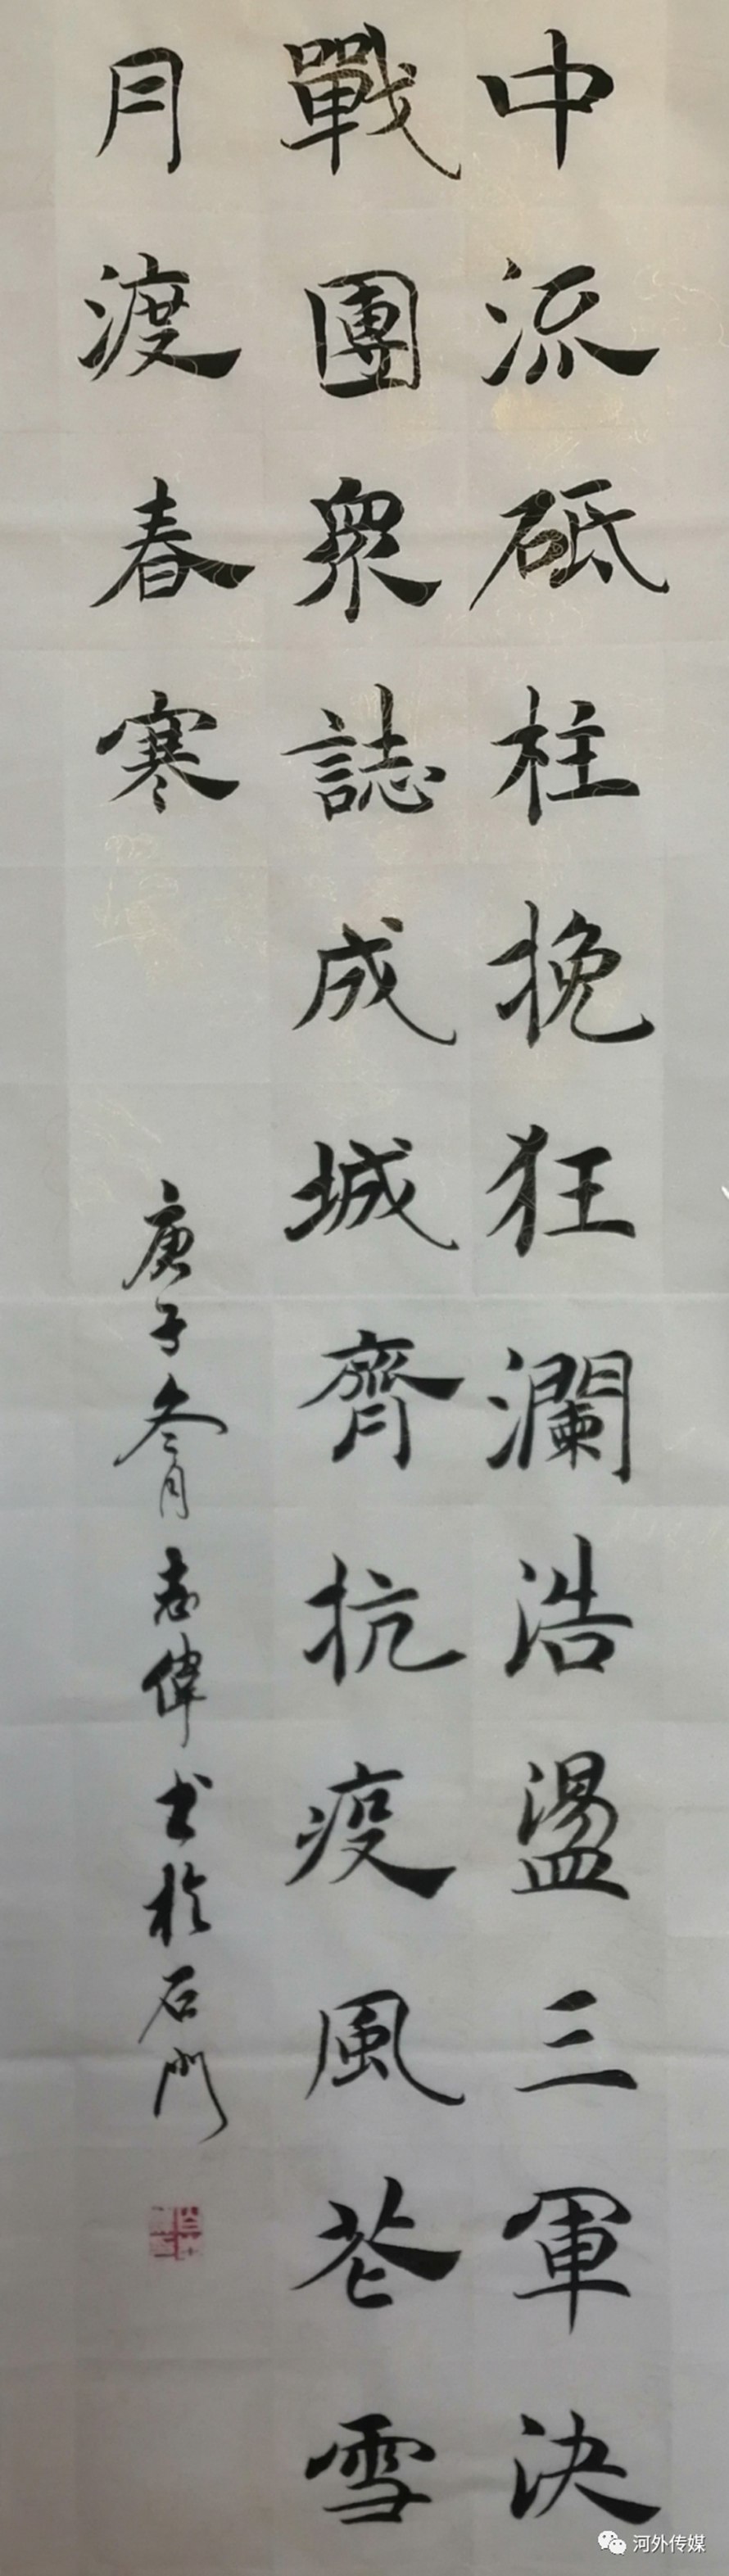 中流砥柱挽狂瀾浩盪三軍決
戰團衆誌成城齊抗疫風花雪
月渡春寒
庚子冬月志偉书於石门
河外传媒